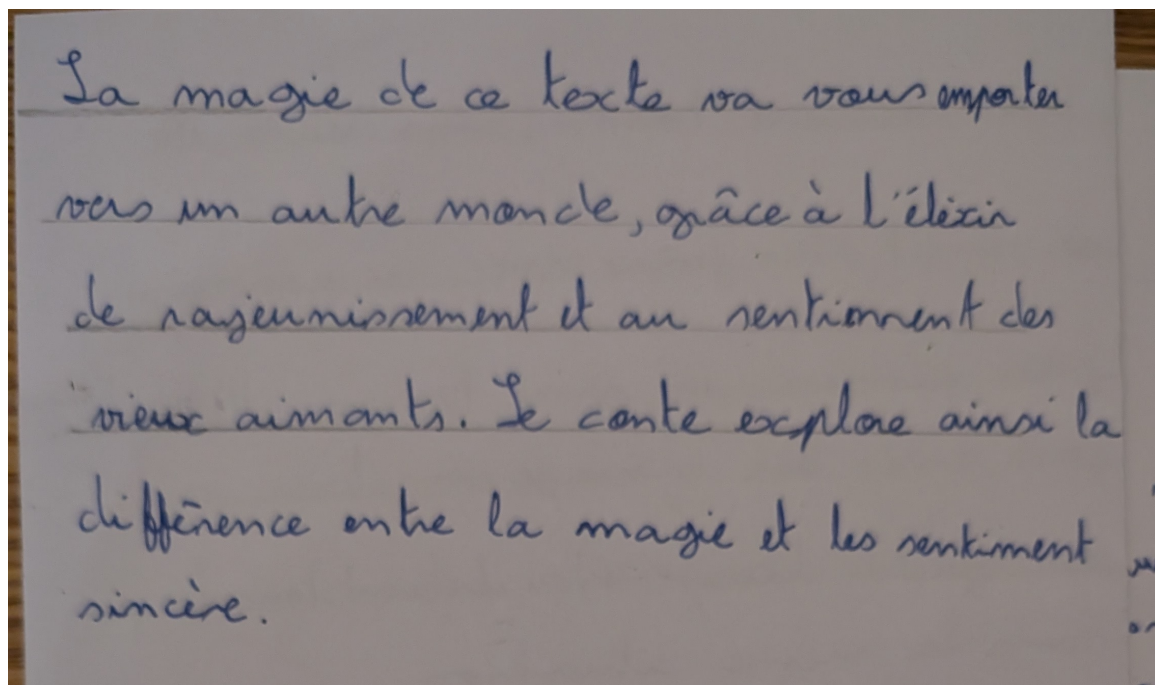 La magie de ce texte va vous emporter
vers un autre monde, grâce à l'élixir
de rajeunissement et au sentiment des
vieux aimants. Le conte explore ainsi la
différence entre la magie et les sentiment
sincère.